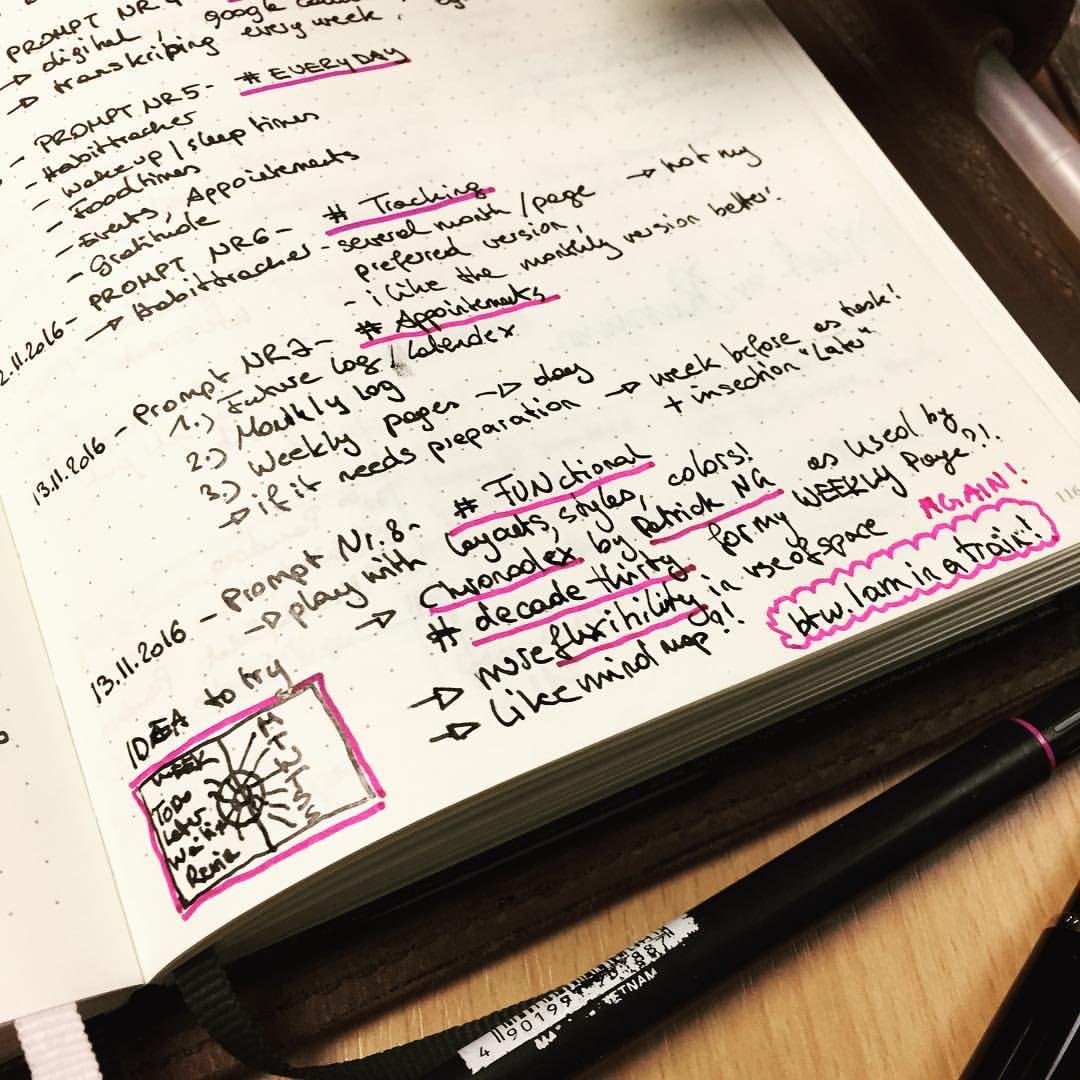 PROMPT NR
→ digital, google
→ transkriping every week,
- PROMPT NR5- # EVERYDAY
- Habittracker
- wake up / sleep times
- Foodtimes
- Events, Appointements
- Gratitude
2.11.2016- PROMPT NR6- # Tracking
→ Habittracker - several month / page → not my
preferred version,
- i like the monthly version better!
13.11.2016 - Prompt NR7- # Appointements
1.) Future log / Calendex
2.) Monthly log
3.) Weekly pages → day
→ if it needs preparation → week before as task!
+ insection "Later"
13.11.2016 - Prompt Nr.8- # FUNctional
→ play with layouts, styles, colors!
→ Chronodex by Patrick NG as used by
# decade thirty for my WEEKLY Page?!
→ more flexibility in use of space AGAIN!
→ like mind map?!
btw. I am in a train!
IDEA to try
WEEK
Todo
Later
Waiting
M
T
W
T
F
S
S
116
4 901991
887
VIETNAM